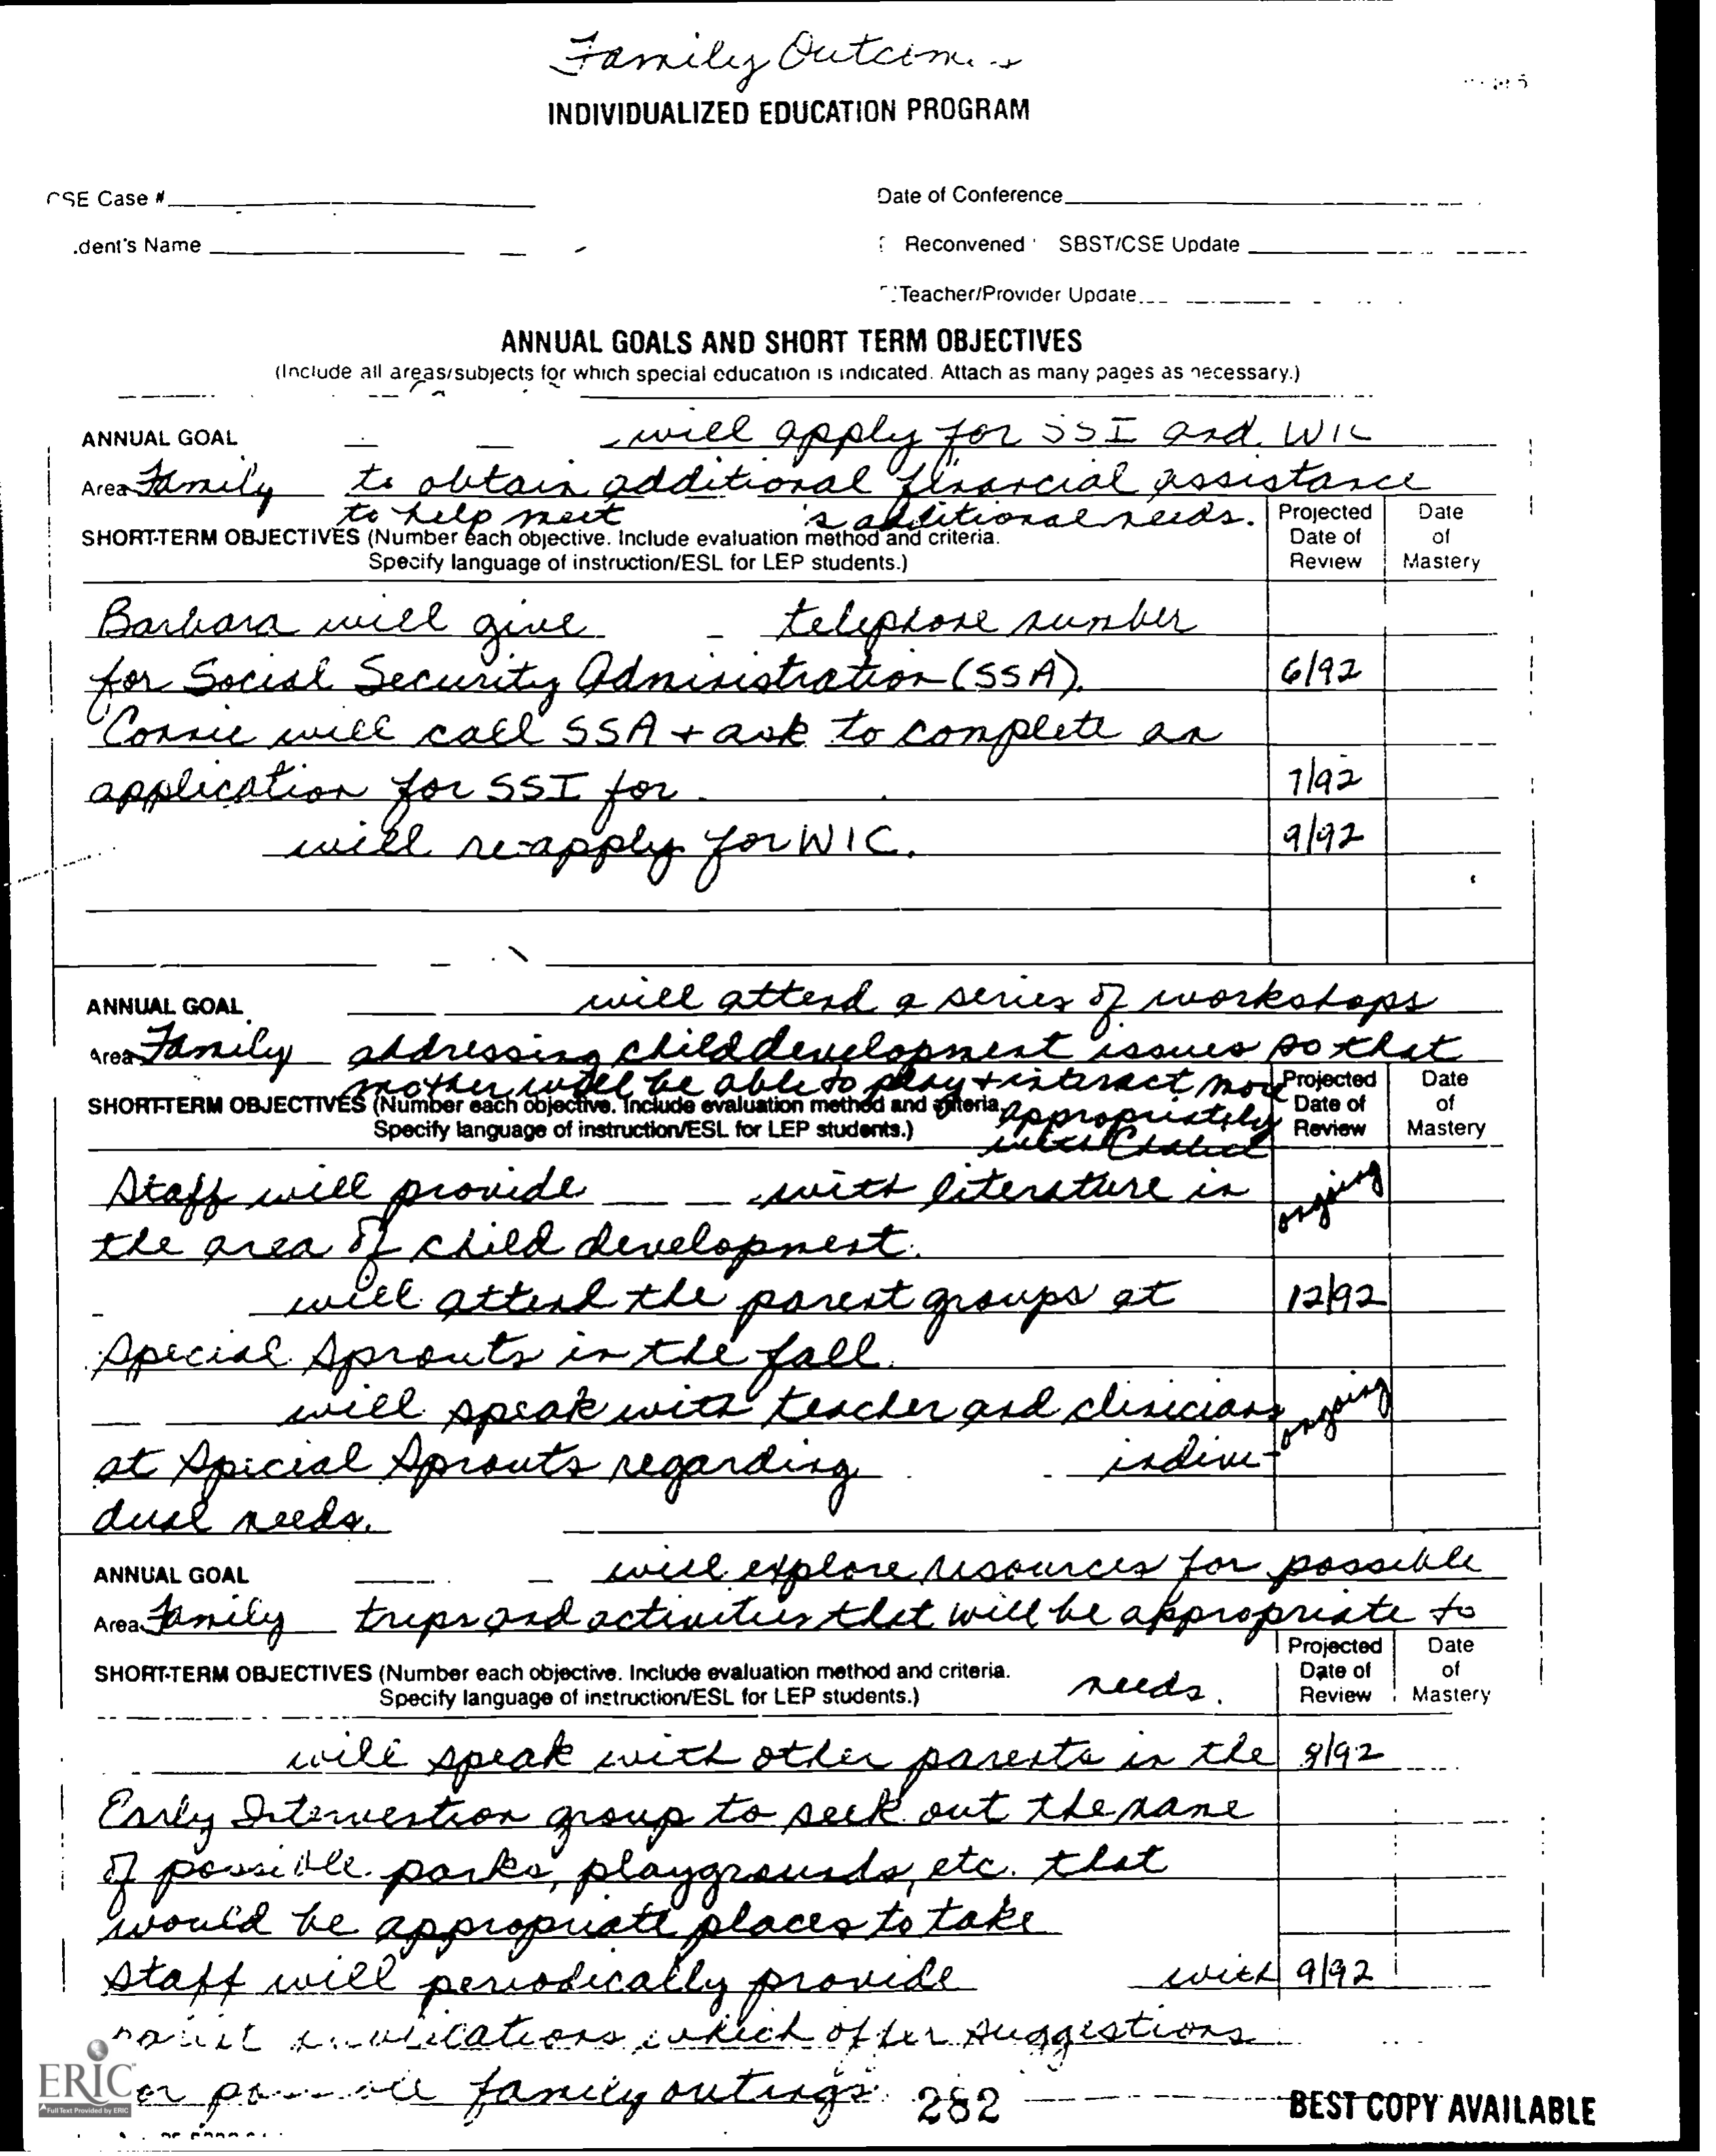 Family Outcomes
INDIVIDUALIZED EDUCATION PROGRAM
CSE Case #
Date of Conference
dent's Name
Reconvened SBST/CSE Update
Teacher/Provider Update
ANNUAL GOALS AND SHORT TERM OBJECTIVES
(Include all areas/subjects for which special education is indicated. Attach as many pages as necessary.)
ANNUAL GOAL will apply for SSI and WIC
Area Family to obtain additional financial assistance
to help meet 's additional needs.
SHORT-TERM OBJECTIVES (Number each objective. Include evaluation method and criteria.
Specify language of instruction/ESL for LEP students.)
Projected Date of Review
Date of Mastery
Barbara will give telephone number
for Social Security Administration (SSA). 6/92
Connie will call SSA + ask to complete an
application for SSI for 7/92
will re-apply for WIC. 9/92
ANNUAL GOAL will attend a series of workshops
Area Family addressing child development issues so that
mother will be able to play + interact more
appropriately
with
SHORT-TERM OBJECTIVES (Number each objective. Include evaluation method and criteria.
Specify language of instruction/ESL for LEP students.)
Projected Date of Review
Date of Mastery
Staff will provide with literature in ongoing
the area of child development.
will attend the parent groups at 12/92
Special Sprouts in the fall.
will speak with teacher and clinicians ongoing
at Special Sprouts regarding indivi-
dual needs.
ANNUAL GOAL will explore resources for possible
Area Family trips and activities that will be appropriate to
needs.
SHORT-TERM OBJECTIVES (Number each objective. Include evaluation method and criteria.
Specify language of instruction/ESL for LEP students.)
Projected Date of Review
Date of Mastery
will speak with other parents in the 8/92
Early Intervention group to seek out the name
of possible parks, playgrounds, etc. that
would be appropriate places to take
Staff will periodically provide with 9/92
which offer suggestions
family outings.
282
ERIC
Full Text Provided by ERIC
BEST COPY AVAILABLE